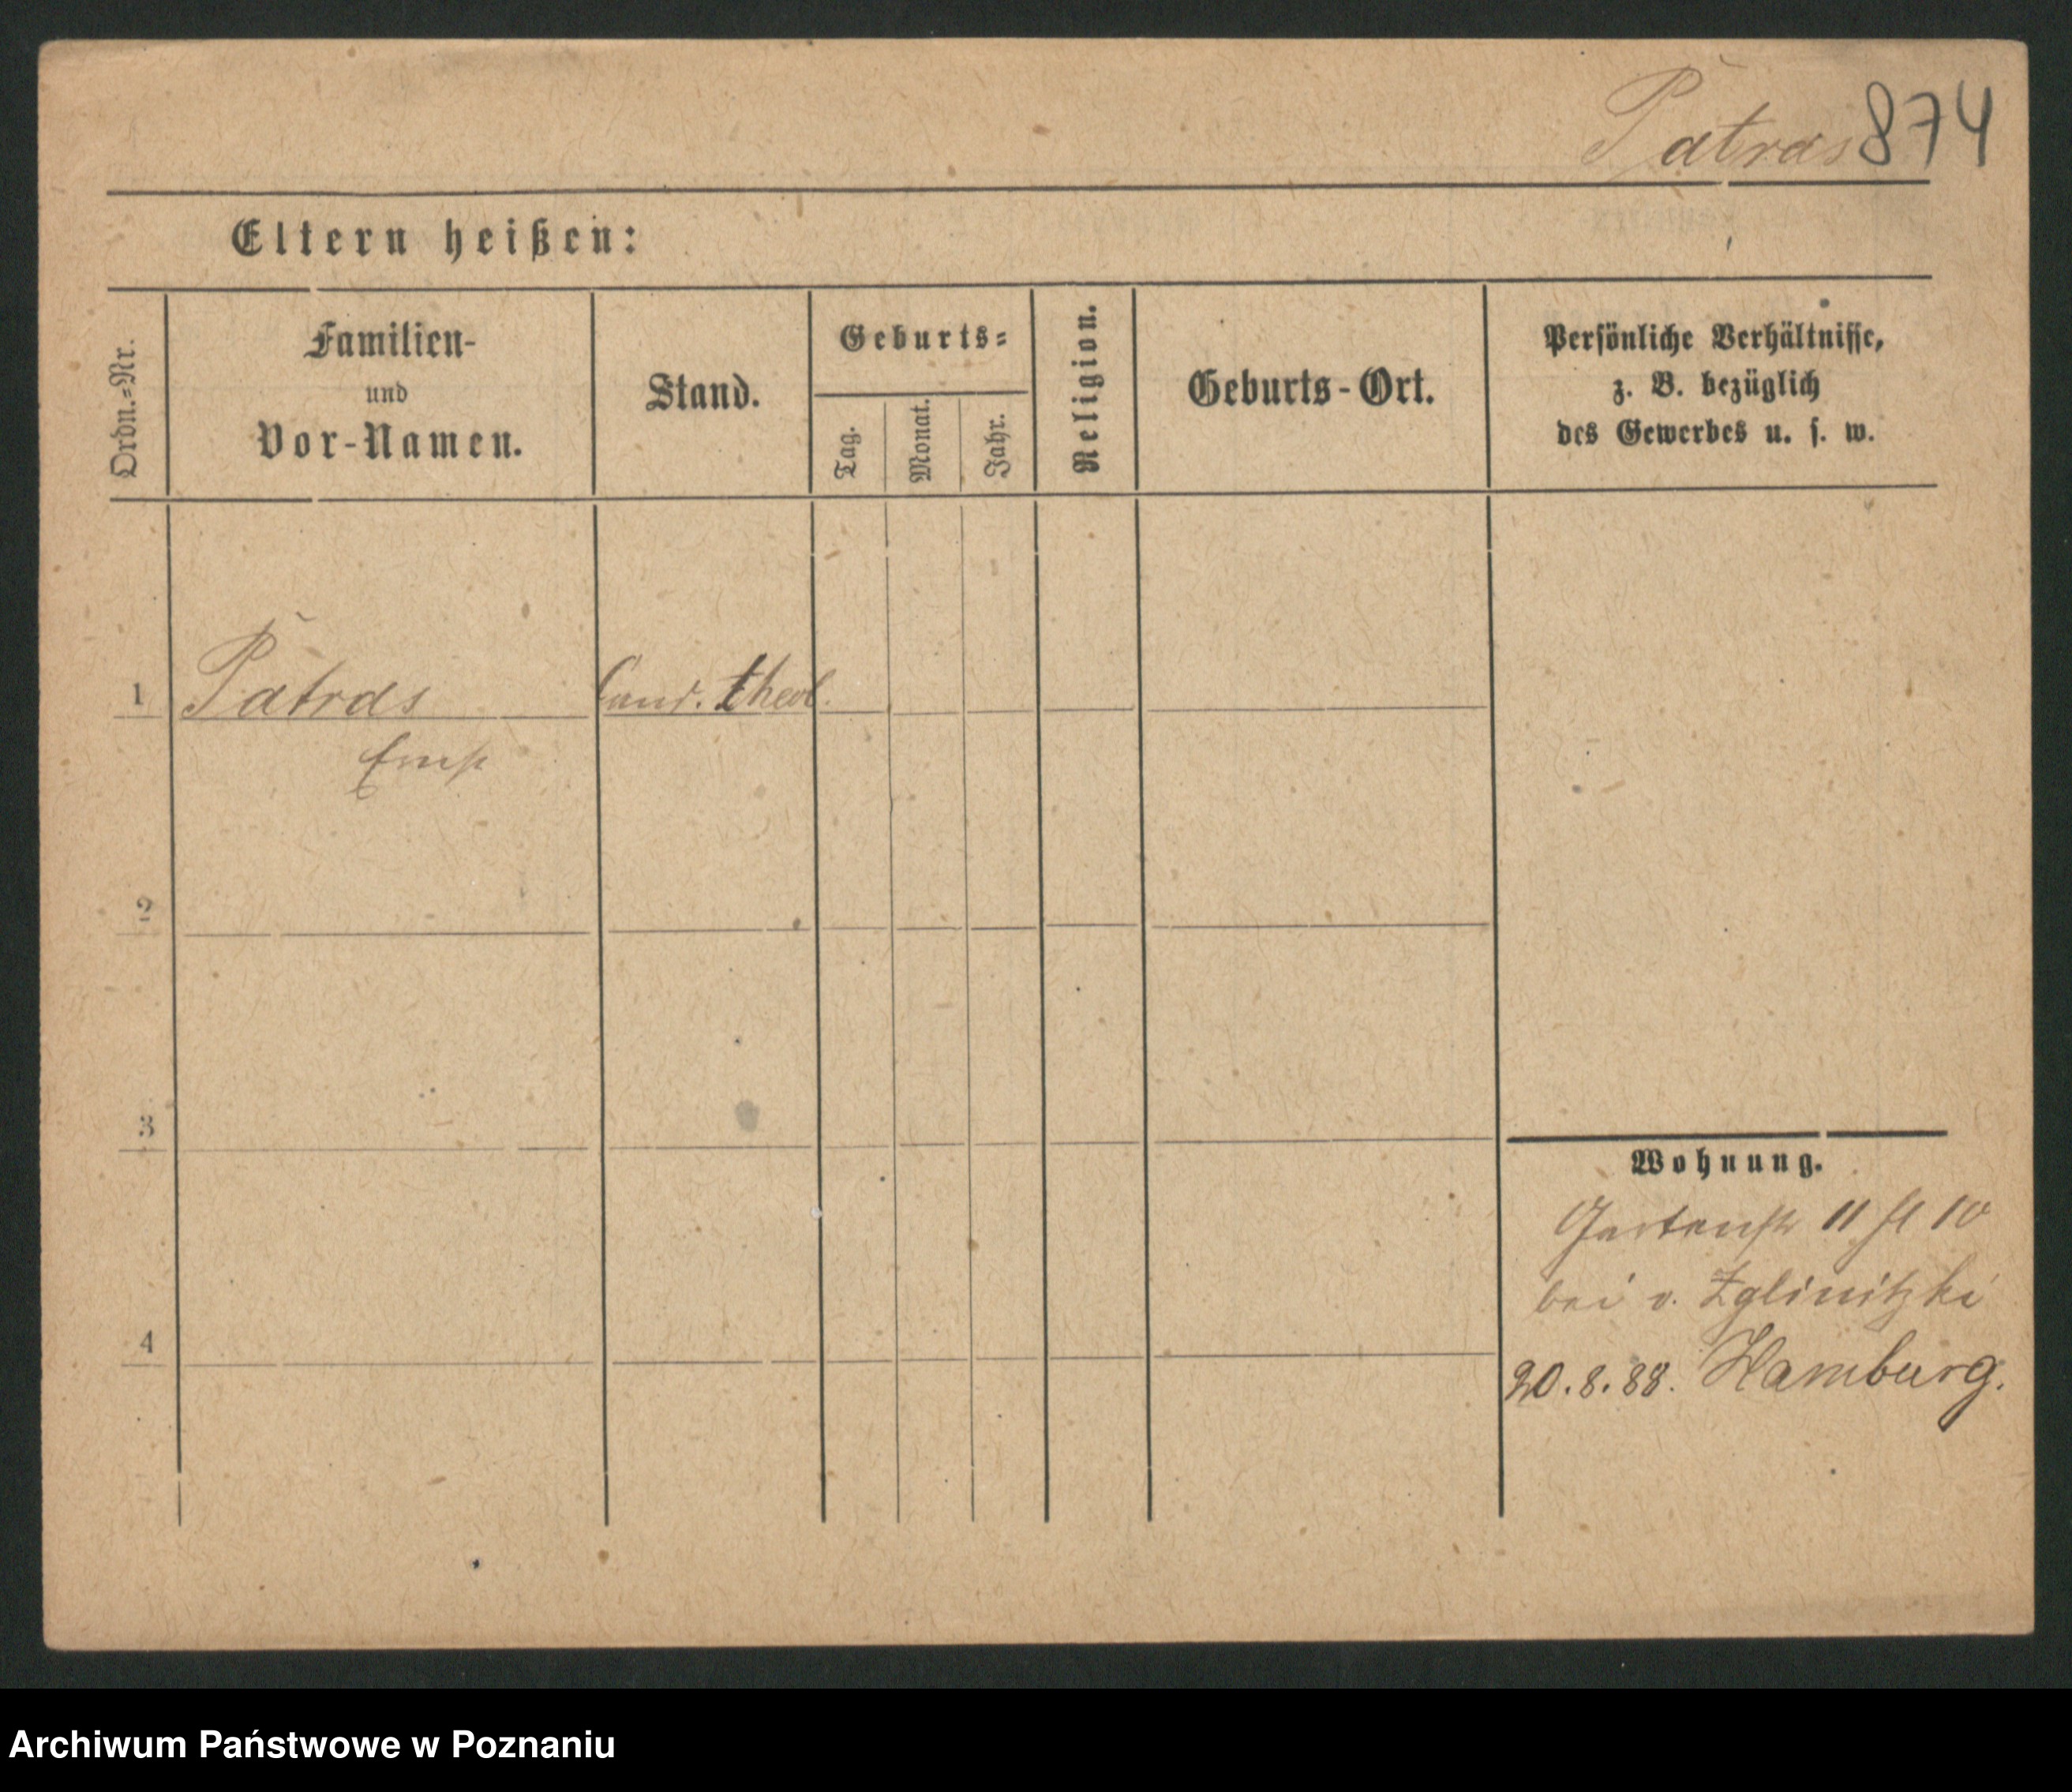 Patras 874
Eltern heißen:
Ordn.-Nr.
Familien-
und
Vor-Namen.
Stand.
Geburts-
Tag.
Monat.
Jahr.
Religion.
Geburts-Ort.
Persönliche Verhältnisse,
z. B. bezüglich
des Gewerbes u. s. w.
1 Patras Cand. theol.
2
3
4
Wohnung.
Gartenstr 11
bei v. Zglinitzki
20.8.88. Hamburg.
Archiwum Państwowe w Poznaniu